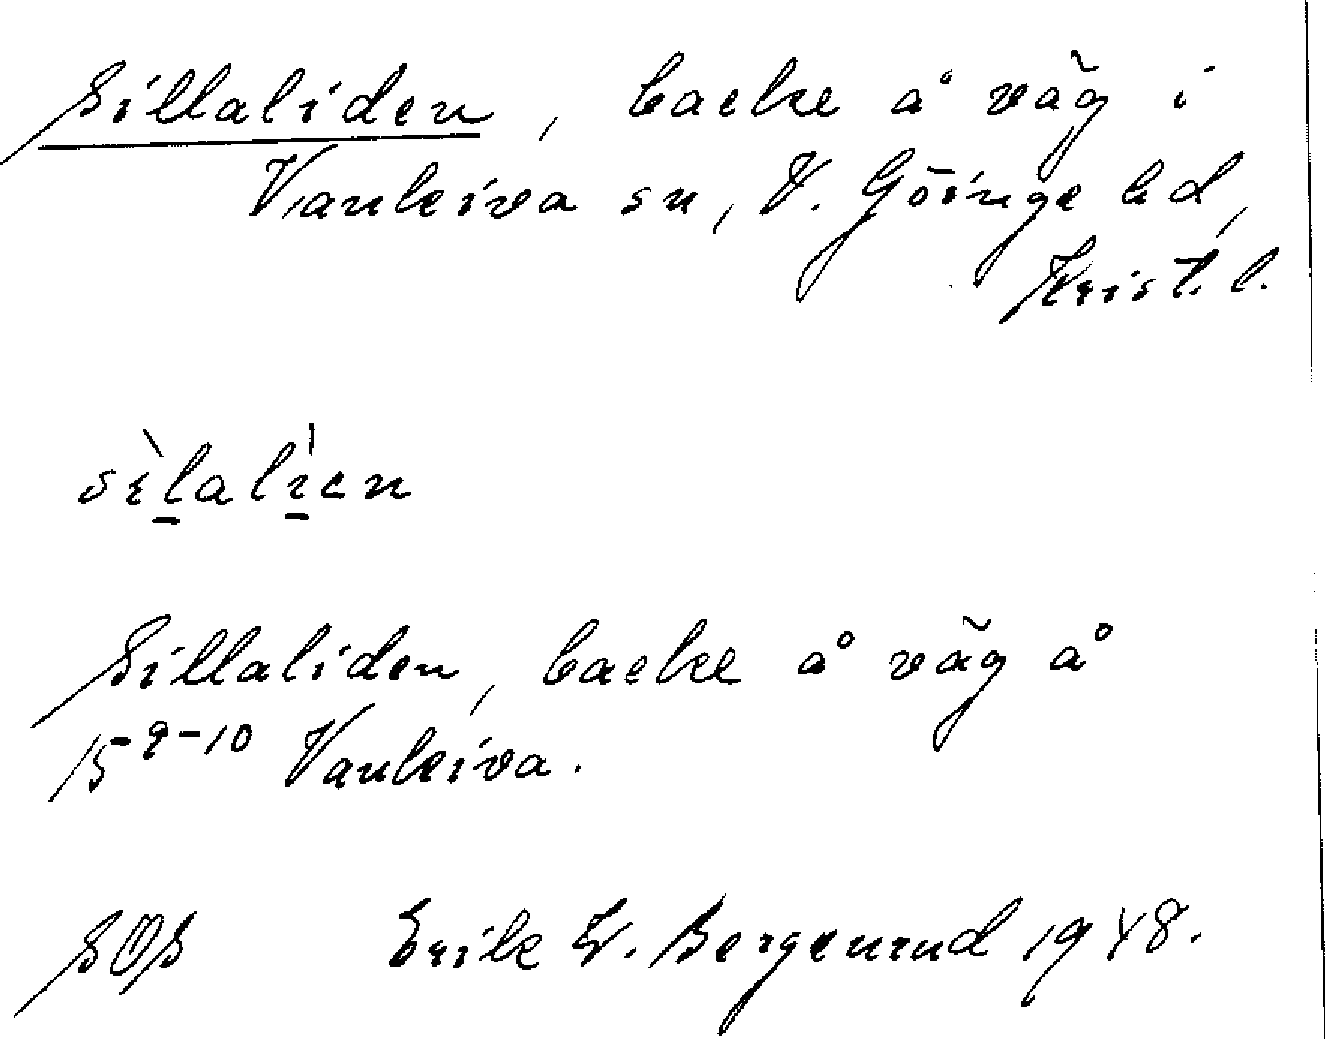 Sillaliden, backe å väg i
Vankiva sn, V. Göinge hd,
Krist. l.
sìlalíen
Sillaliden, backe å väg å
15 9-10 Vankiva.
SOS Erik W. Bergenrud 1948.